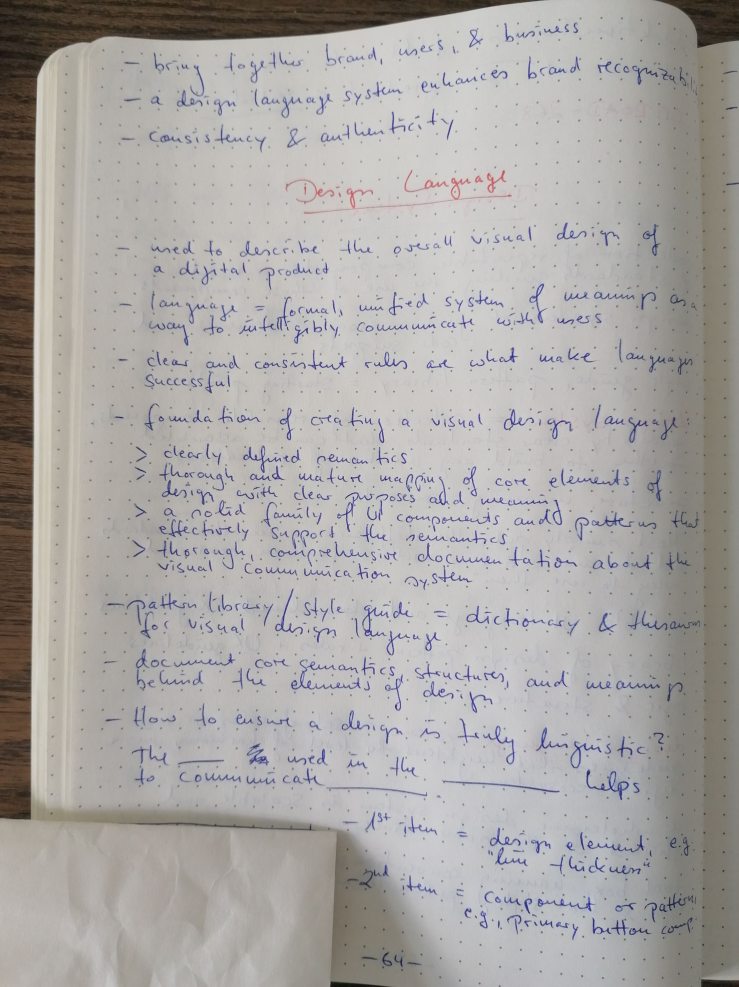 - bring together brand, users, & business
- a design language system enhances brand recognizabili
- consistency & authenticity
Design Language
- used to describe the overall visual design of
a digital product
- language = formal, unified system of meanings as a
way to intelligibly communicate with users
- clear and consistent rules are what make languages
successful
- foundation of creating a visual design language:
> clearly defined semantics
> thorough and mature mapping of core elements of
design with clear purposes and meaning
> a solid family of UI components and patterns that
effectively support the semantics
> thorough, comprehensive documentation about the
visual communication system
- pattern library / style guide = dictionary & thesaurus
for visual design language
- document core semantics, structures, and meanings
behind the elements of design
- How to ensure a design is truly linguistic?
The ___ used in the ___ helps
to communicate ___.
- 1st item = design element, e.g.
"line thickness"
- 2nd item = component or pattern,
e.g., primary button comp.
- 64 -